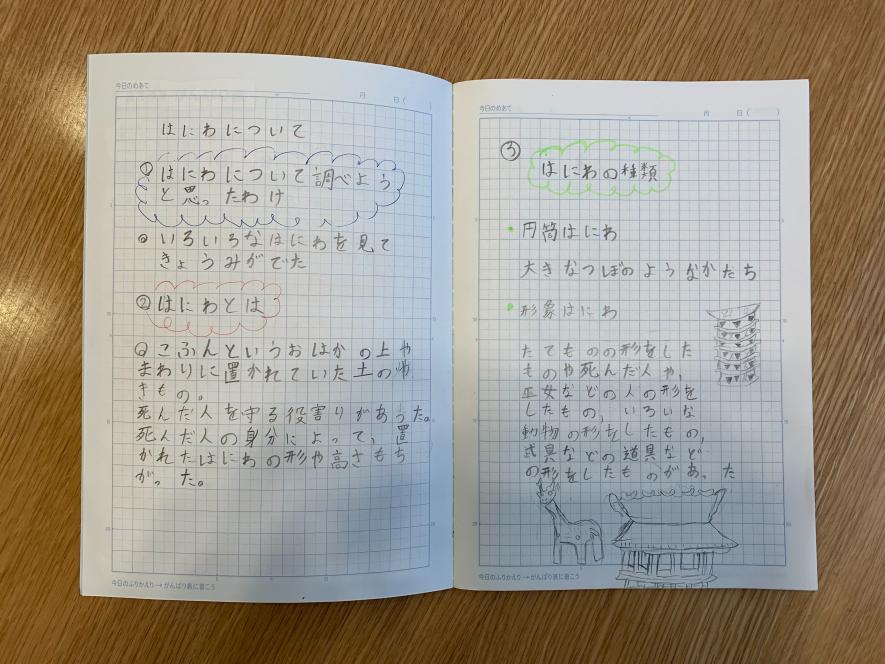 今日のめあて 月 日( )
はにわについて
① はにわについて調べよう
と思ったわけ
いろいろなはにわを見て
きょうみがでた
② はにわとは
こふんというおはかの上や
まわりに置かれていた土のや
きもの。
死んだ人を守る役割りがあった。
死んだ人の身分によって、置
かれたはにわの形や高さもち
がった。
今日のふりかえり→がんばり表に書こう
今日のめあて 月 日( )
③ はにわの種類
円筒はにわ
大きなつぼのようなかたち
形象はにわ
たてものの形をした
ものや死んだ人や、
巫女などの人の形を
したもの、いろいな
動物の形をしたもの、
式具などの道具など
の形をしたものがあった
今日のふりかえり→がんばり表に書こう